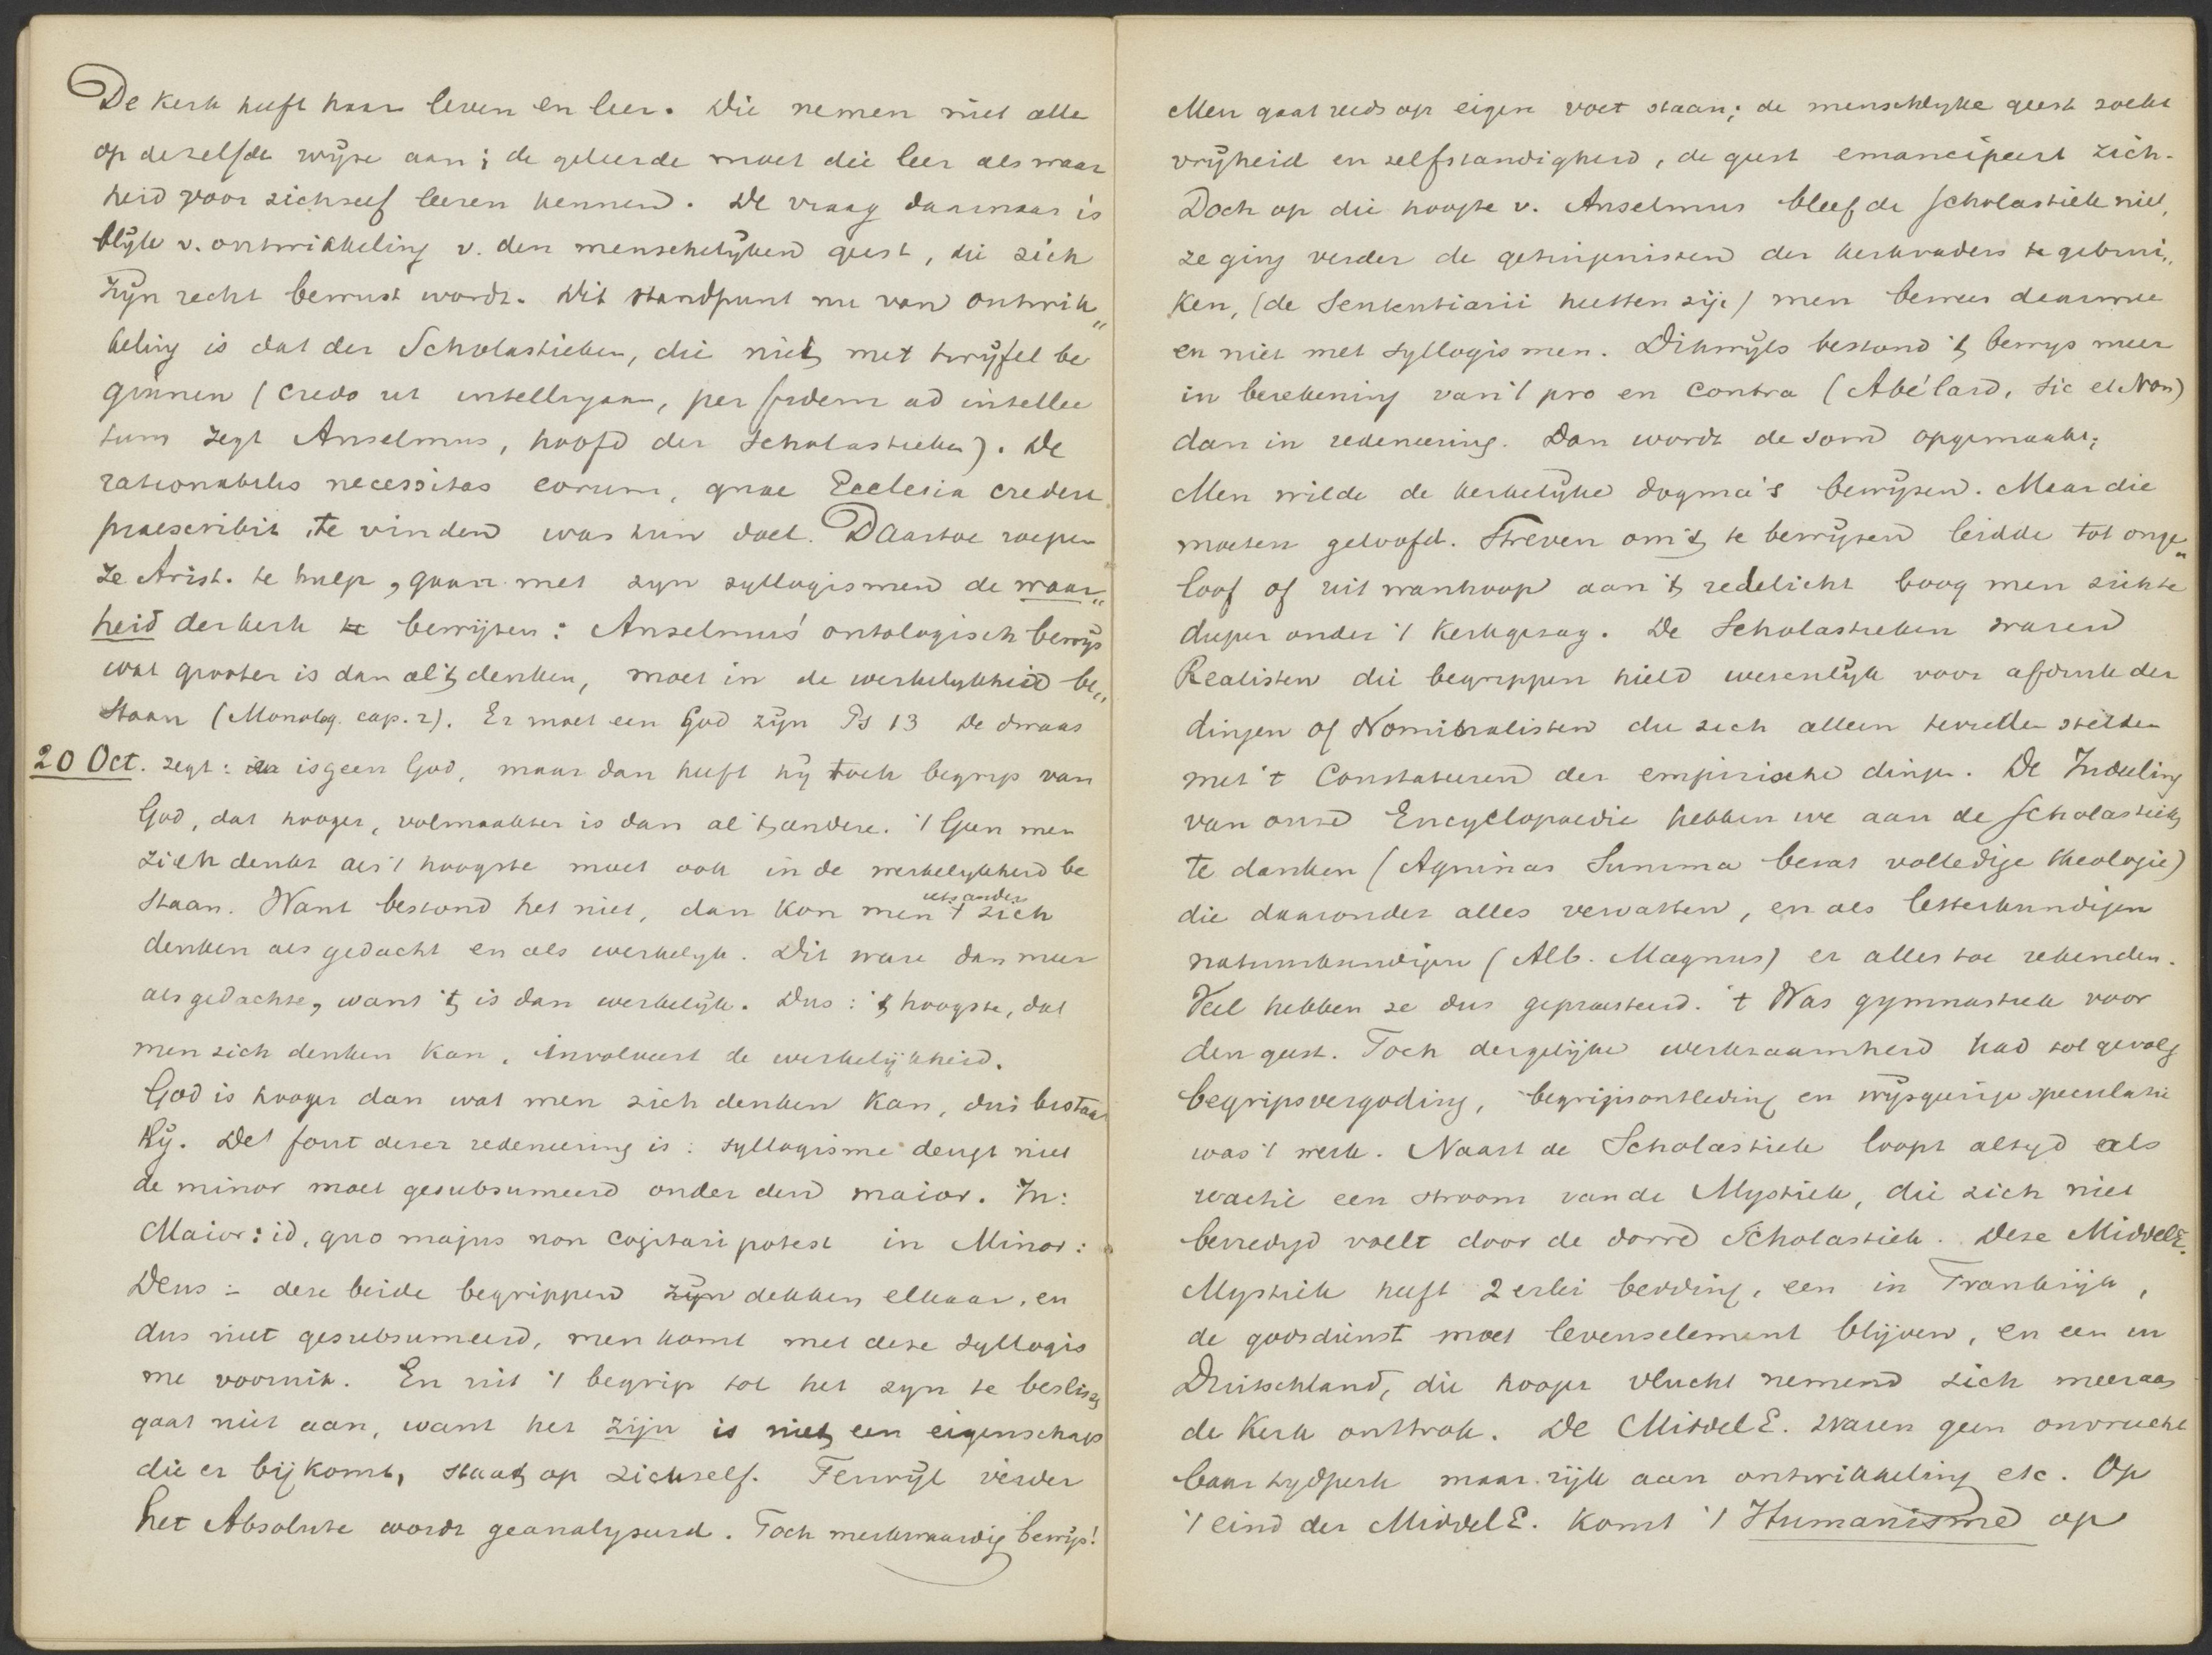 De Kerk heeft haar leven en leer. Die nemen niet alle
op dezelfde wijze aan; de geleerde moet die leer als waar
heid voor zichself leeren kennen. De vraag daarnaar is
blijk v. ontwikkeling v. den menschelijken geest, die zich
zijn recht bewust wordt. Dit standpunt nu van ontwik„
keling is dat der Scholastieken, die niet met twijfel be
ginnen (credo ut intelligam, per fidem ad intellec
tum zegt Anselmus, hoofd der Scholastieken). De
rationabilis necessitas eorum, quae Ecclesia credere
praescribit, te vinden was hun doel. Daartoe roepen
ze Arist. te hulp, gaan met zyn syllogismen de waar„
heid der kerk te bewijzen: Anselmus' ontologisch bewijs
wat grooter is dan al 't denken, moet in de werkelykheid be„
staan (Monolog. cap. 2). Er moet een God zijn Ps 13 De dwaas
20 Oct. zegt: er is geen God, maar dan heeft hij toch begrip van
God, dat hooger, volmaakter is dan al 't andere. 't Geen men
zich denkt als 't hoogste moet ook in de werkelykheid be
staan. Want bestond het niet, dan kon men iets anders 't zich
denken als gedacht en als werkelyk. Dit ware dan meer
als gedachte, want 't is dan werkelijk. Dus: 't hoogste, dat
men zich denken kan, involveert de werkelijkheid.
God is hooger dan wat men zich denken kan, dus bestaat
hij. Det fout dezer redeneering is: syllogisme deugt niet
de minor moet gesubsumeerd onder den maior. In:
Maior: id, quo majus non cogitari potest in Minor:
Deus = deze beide begrippen zijn dekken elkaar, en
dus niet gesubsumeerd, men komt met deze syllogis
me vooruit. En uit 't begrip tot het zyn te besliss
gaat niet aan, want het zijn is niet een eigenschap
die er bij komt, staat op zichself. Terwijl verder
het Absolute wordt geanalyseerd. Toch merkwaardig bewijs!
Men gaat reeds op eigen voet staan; de menschlyke geest zoekt
vrijheid en zelfstandigheid, de geest emancipeert zich.
Doch op die hoogte v. Anselmus bleef de scholastiek niet,
ze ging verder de getuigenissen der kerkvaders te gebrui„
ken, (de Sententiarii heetten zije) men bewees daarmee
en niet met syllogismen. Dikwijls bestond 't bewys meer
in berekening van 't pro en contra (Abélard, Sic et Non)
dan in redeneering. Dan wordt de som opgemaakt;
Men wilde de kerkelijke dogma's bewijzen. Maar die
moeten geloofd. Streven om 't te bewijzen leidde tot onge„
loof of uit wanhoop aan 't redelicht boog men zichte
dieper onder 't Kerkgezag. De Scholastieken waren
Realisten die begrippen hield wezenlijk voor afdruk der
dingen of Nominalisten die zich alleen tevreden stelden
met 't Constateeren der empirische dingen. De Indeeling
van onze Encyclopaedie hebben we aan de scholastiek
te danken (Aquinas Summa bevat volledige theologie)
die daaronder alles vervatten, en als letterkundigen
natuurkundigen (Alb. Magnus) er alles toe rekenden.
Veel hebben ze dus gepraesteerd. 't Was gymnastiek voor
den geest. Toch dergelijke werkzaamheid had tot gevolg
begripsvergoding, begripsontleding en wijsgeerige speculatie
was 't werk. Naast de Scholastiek loopt altyd als
reactie een stroom van de Mystiek, die zich niet
bevredigd voelt door de dorre Scholastiek. Deze Middel E.
Mystiek heeft 2 erlei bedding, een in Frankrijk,
de godsdienst moet levenselement blijven, en een in
Duitschland, die hooger vlucht nemend zich meer aan
de Kerk onttrok. De Middel E. waren geen onvrucht
baar tydperk maar rijk aan ontwikkeling etc. Op
't eind der Middel E. komt 't Humanisme op